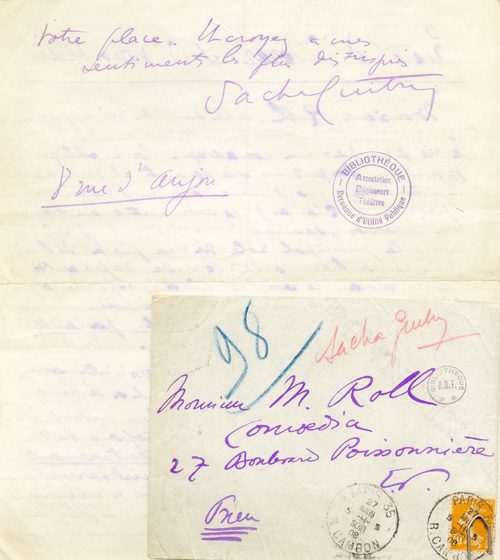 votre place. Et croyez à mes
sentiments les plus distingués
Sacha Guitry
8 rue d'Anjou
BIBLIOTHÈQUE
Association
Régisseurs
Théâtres
Reconnue d'Utilité Publique
98
Sacha Guitry
BIBLIOTHÈQUE
A.R.T.
Monsieur M. Roll
Comœdia
27 Boulevard Poissonnière
E.V.
Pneu
PARIS 35
27
08
R. CAMBON
PARIS
R. CAMBON